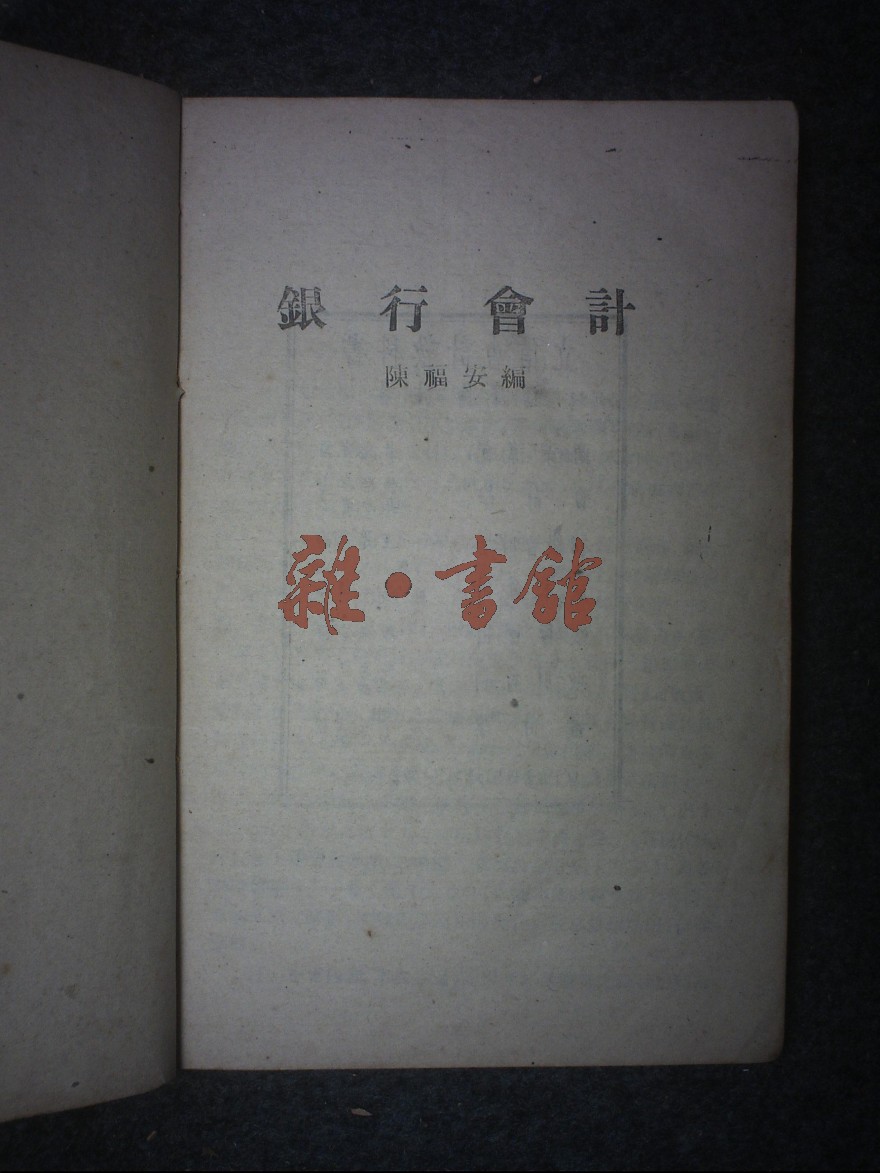 銀行會計
陳福安編
雜·書館